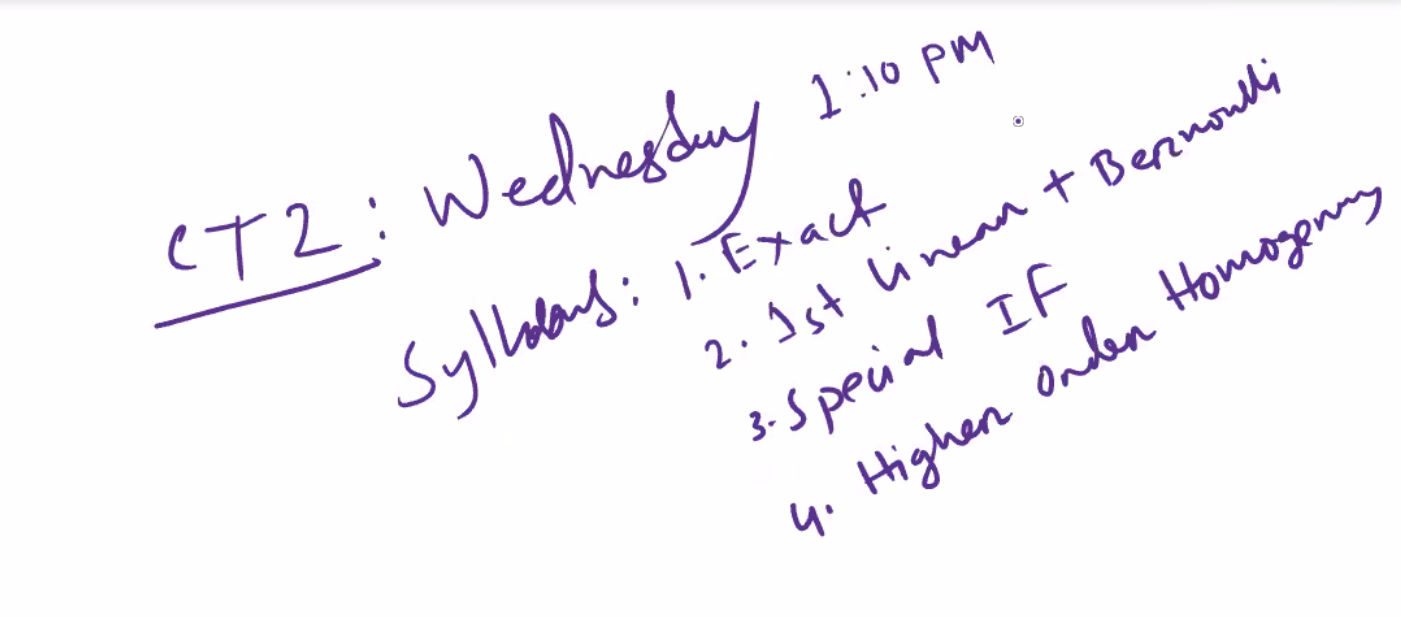 CT2: Wednesday 1:10 PM
Syllabus: 1. Exact
2. 1st Linear + Bernoulli
3. Special IF
4. Higher Order Homogenous